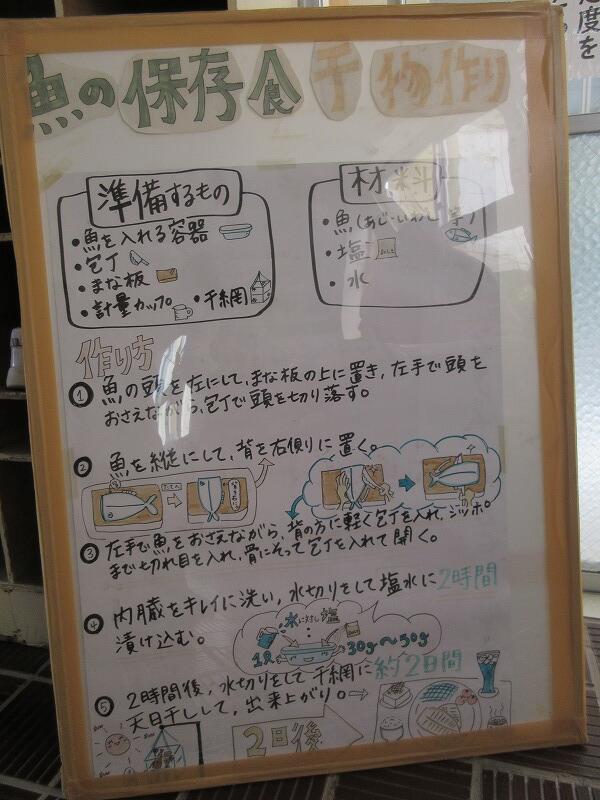 魚の保存食 干物作り
準備するもの
・魚を入れる容器
・包丁
・まな板
・計量カップ ・干網
材料
・魚(あじ・いわし等)
・塩
・水
作り方
① 魚の頭を左にして、まな板の上に置き、左手で頭を
おさえながら、包丁で頭を切り落す。
② 魚を縦にして、背を右側に置く。
③ 左手で魚をおさえながら、背の方に軽く包丁を入れ、シッポ
まで切れ目を入れ、骨にそって包丁を入れて開く。
④ 内臓をキレイに洗い、水切りをして塩水に2時間
漬け込む。
水に対し塩
1ℓ 30g〜50g
⑤ 2時間後、水切りをして干網に約2日間
天日干しして、出来上がり。
2日後
度を